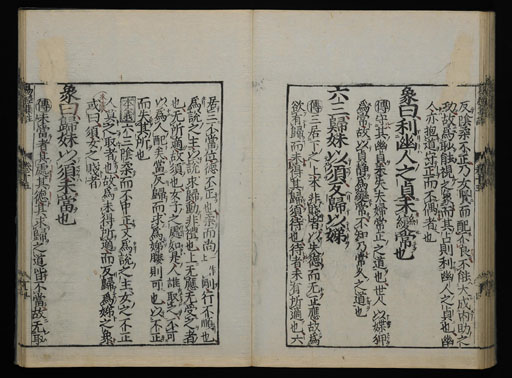 反陰柔不正乃女賢而配不良不能大成内助之
功故爲眇能視之象而其占則利幽人之貞也幽
人亦抱道守正而不偶者也
象曰利幽人之貞未變常也
傳守其幽貞未失夫婦常正之道也世人以媟狎
爲常故以貞靜爲變常不知乃常久之道也
六三歸妹以須反歸以娣
傳三居下之上本非賤者以失德而无正應故爲
欲有歸而未得其歸須待也待者未有所適也六
居三不當位德不正也柔而尚剛行不順也
爲說之主以說求歸動非禮也上无應无受之者
也无所適故須也女子之處如是人誰取之不可
以爲人配矣當反歸而求爲娣媵則可也以不正
而失其所也
本義六三陰柔而不中正又爲說之主女之不正
人莫之取者也故爲未得所適而反歸爲娣之象
或曰須女之賤者
象曰歸妹以須未當也
傳未當者其處其德其求歸之道皆不當故无取